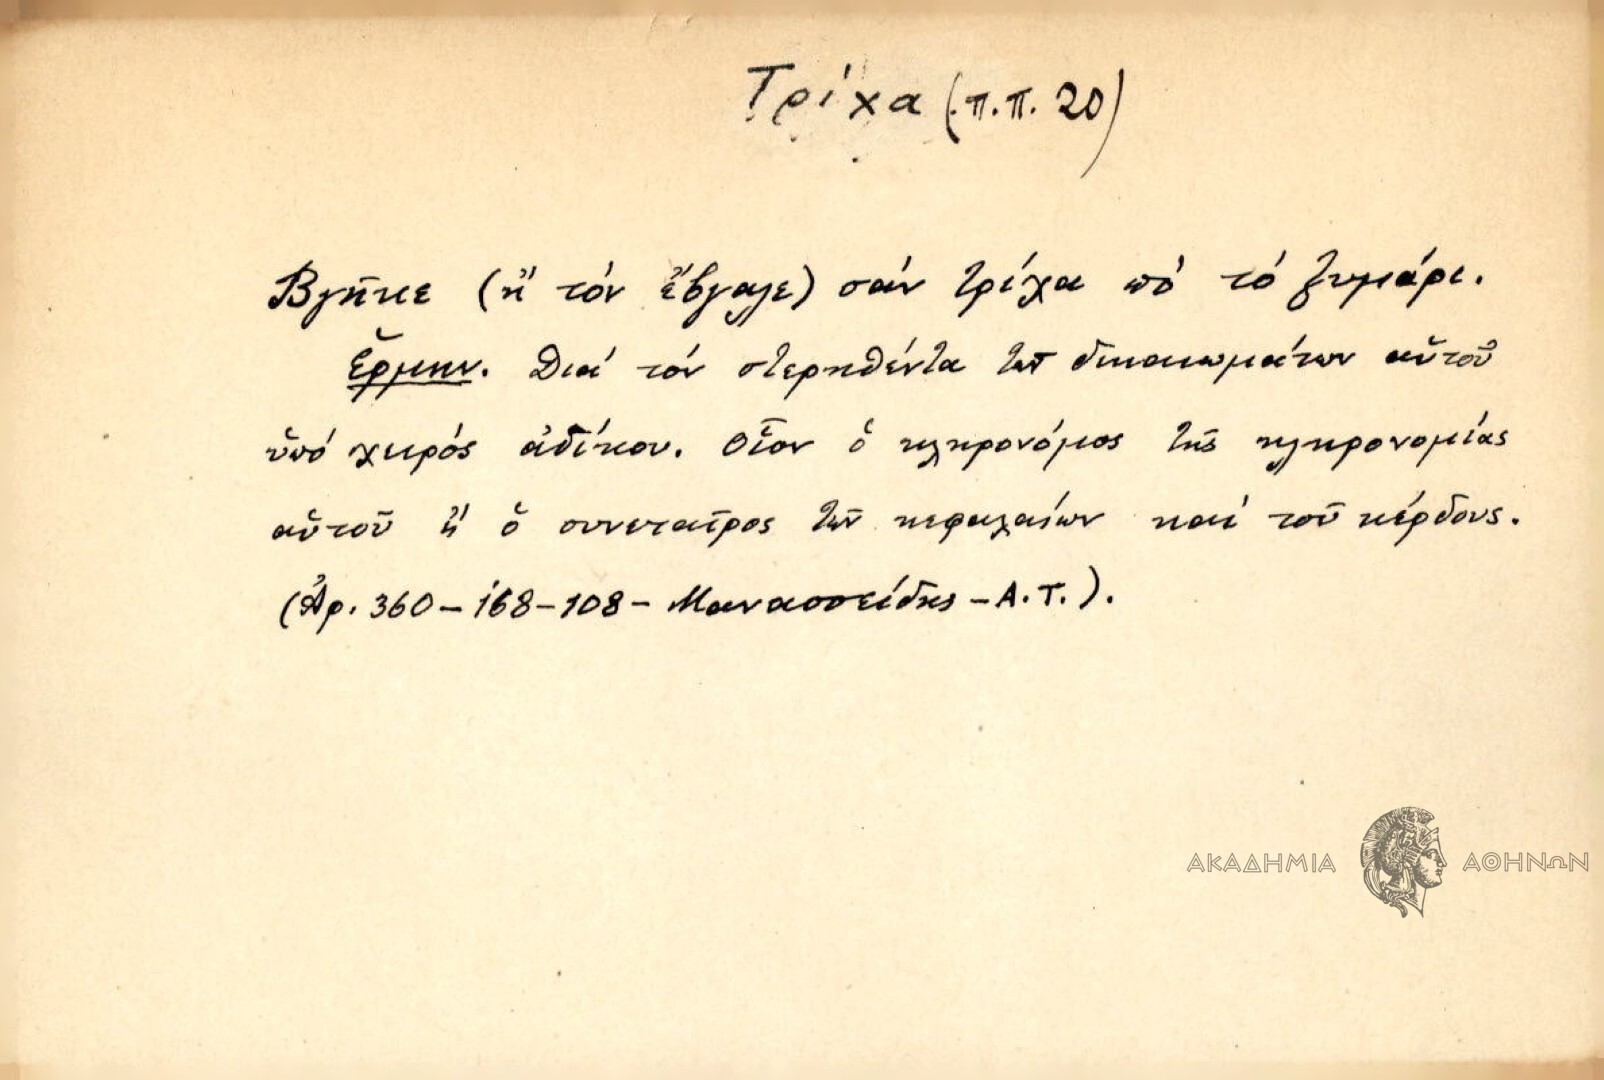 Τρίχα (π.π. 20)
Βγῆκε (ἤ τόν ἔβγαλε) σάν τρίχα πό τό ζυμάρι.
Ἑρμην. Διά τόν στερηθέντα τῶν δικαιωμάτων αὐτοῦ
ὑπό χειρός ἀδίκου. Οἷον ὁ κληρονόμος τῆς κληρονομίας
αὐτοῦ ἤ ὁ συνεταῖρος τῶν κεφαλαίων καί τοῦ κέρδους.
(Ἀρ. 360-168-108- Μανασσείδης -Α.Τ.).
ΑΚΑΔΗΜΙΑ ΑΘΗΝΩΝ